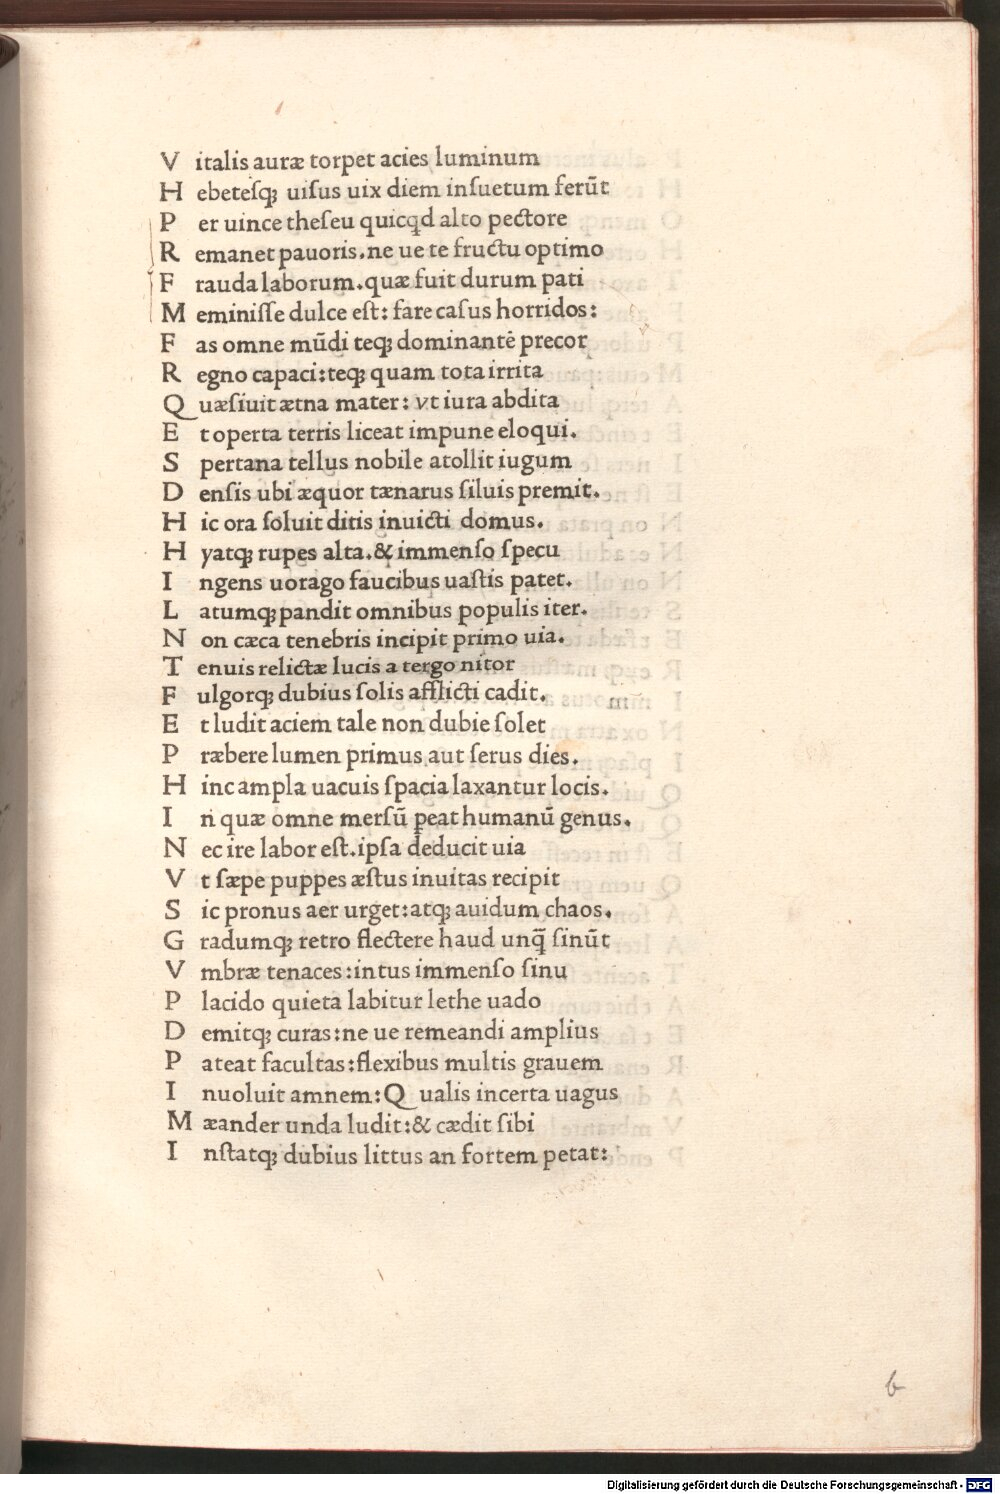 V italis auræ torpet acies luminum
H ebeteſqꝫ uiſus uix diem inſuetum ferūt
P er uince theſeu quicqd alto pectore
R emanet pauoris.ne ue te fructu optimo
F rauda laborum.quæ fuit durum pati
M eminiſſe dulce eſt: fare caſus horridos:
F as omne mūdi teqꝫ dominantē precor
R egno capaci:teqꝫ quam tota irrita
Q uæſiuit ætna mater: vt iura abdita
E t operta terris liceat impune eloqui.
S pertana tellus nobile atollit iugum
D enſis ubi æquor tænarus ſiluis premit.
H ic ora ſoluit ditis inuicti domus.
H yatqꝫ rupes alta.& immenſo ſpecu
I ngens uorago faucibus uaſtis patet.
L atumqꝫ pandit omnibus populis iter.
N on cæca tenebris incipit primo uia.
T enuis relictæ lucis a tergo nitor
F ulgorqꝫ dubius ſolis afflicti cadit.
E t ludit aciem tale non dubie ſolet
P ræbere lumen primus aut ſerus dies.
H inc ampla uacuis ſpacia laxantur locis.
I n quæ omne merſū ꝑeat humanū genus.
N ec ire labor eſt.ipſa deducit uia
V t ſæpe puppes æſtus inuitas recipit
S ic pronus aer urget:atqꝫ auidum chaos.
G radumqꝫ retro flectere haud unq̄ ſinūt
V mbræ tenaces:intus immenſo ſinu
P lacido quieta labitur lethe uado
D emitqꝫ curas:ne ue remeandi amplius
P ateat facultas:flexibus multis grauem
I nuoluit amnem:Q ualis incerta uagus
M æander unda ludit:& cædit ſibi
I nſtatqꝫ dubius littus an fortem petat:
b
Digitalisierung gefördert durch die Deutsche Forschungsgemeinschaft - DFG